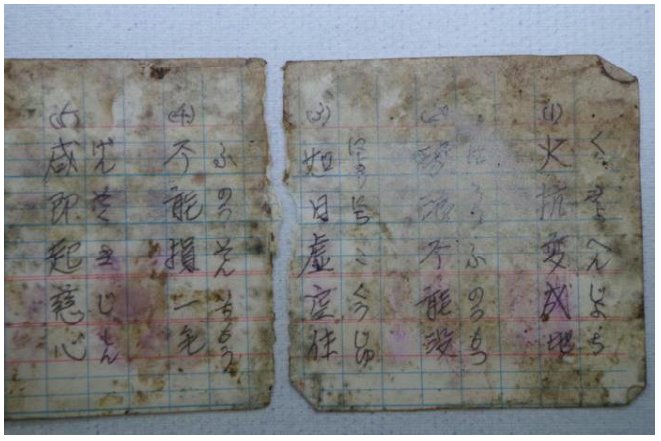 く きよ へん じよ ち
(1) 火抗変成地
はろう ふ のう もつ
(2) 波浪不能没
によ にち こ くう じゆ
(3) 如日虚空住
ふ のう そん ちもう
(4) 不能損一毛
げん そく き じ しん
(5) 咸即起慈心